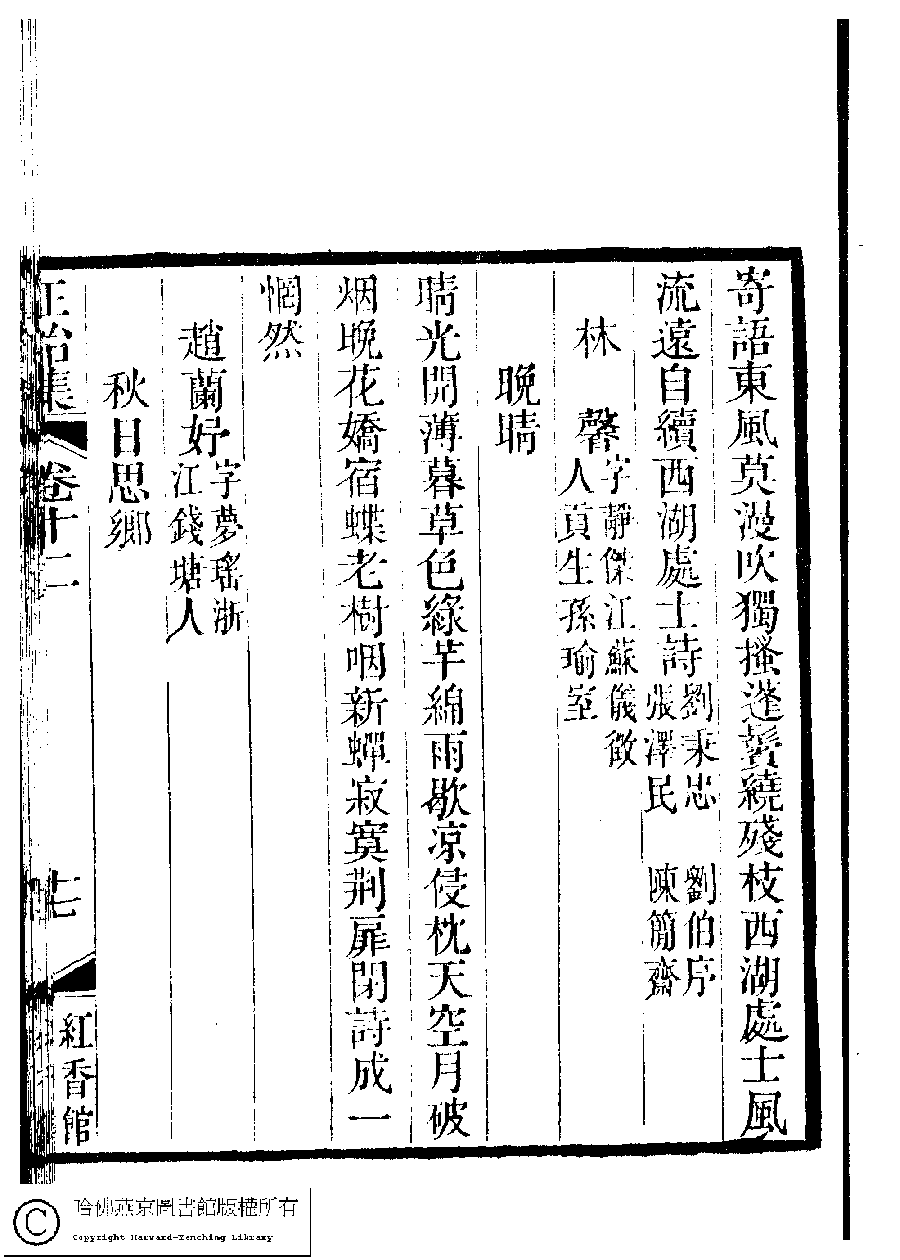 寄語東風莫漫吹獨搔蓬鬢繞殘枝西湖處士風
流遠自續西湖處士詩劉秉忠 劉伯序
張澤民 陳簡齋
林 馨字靜傑江蘇儀徵
人貢生孫瑜室
晚晴
晴光開薄暮草色綠芊綿雨歇凉侵枕天空月破
烟晚花嬌宿蝶老樹咽新蟬寂寞荆扉閉詩成一
惘然
趙蘭妤字夢瑤浙
江錢塘人
秋日思鄉
正始集 卷十二 十七 紅香館
哈佛燕京圖書館版權所有
Copyright Harvard-Yenching Library